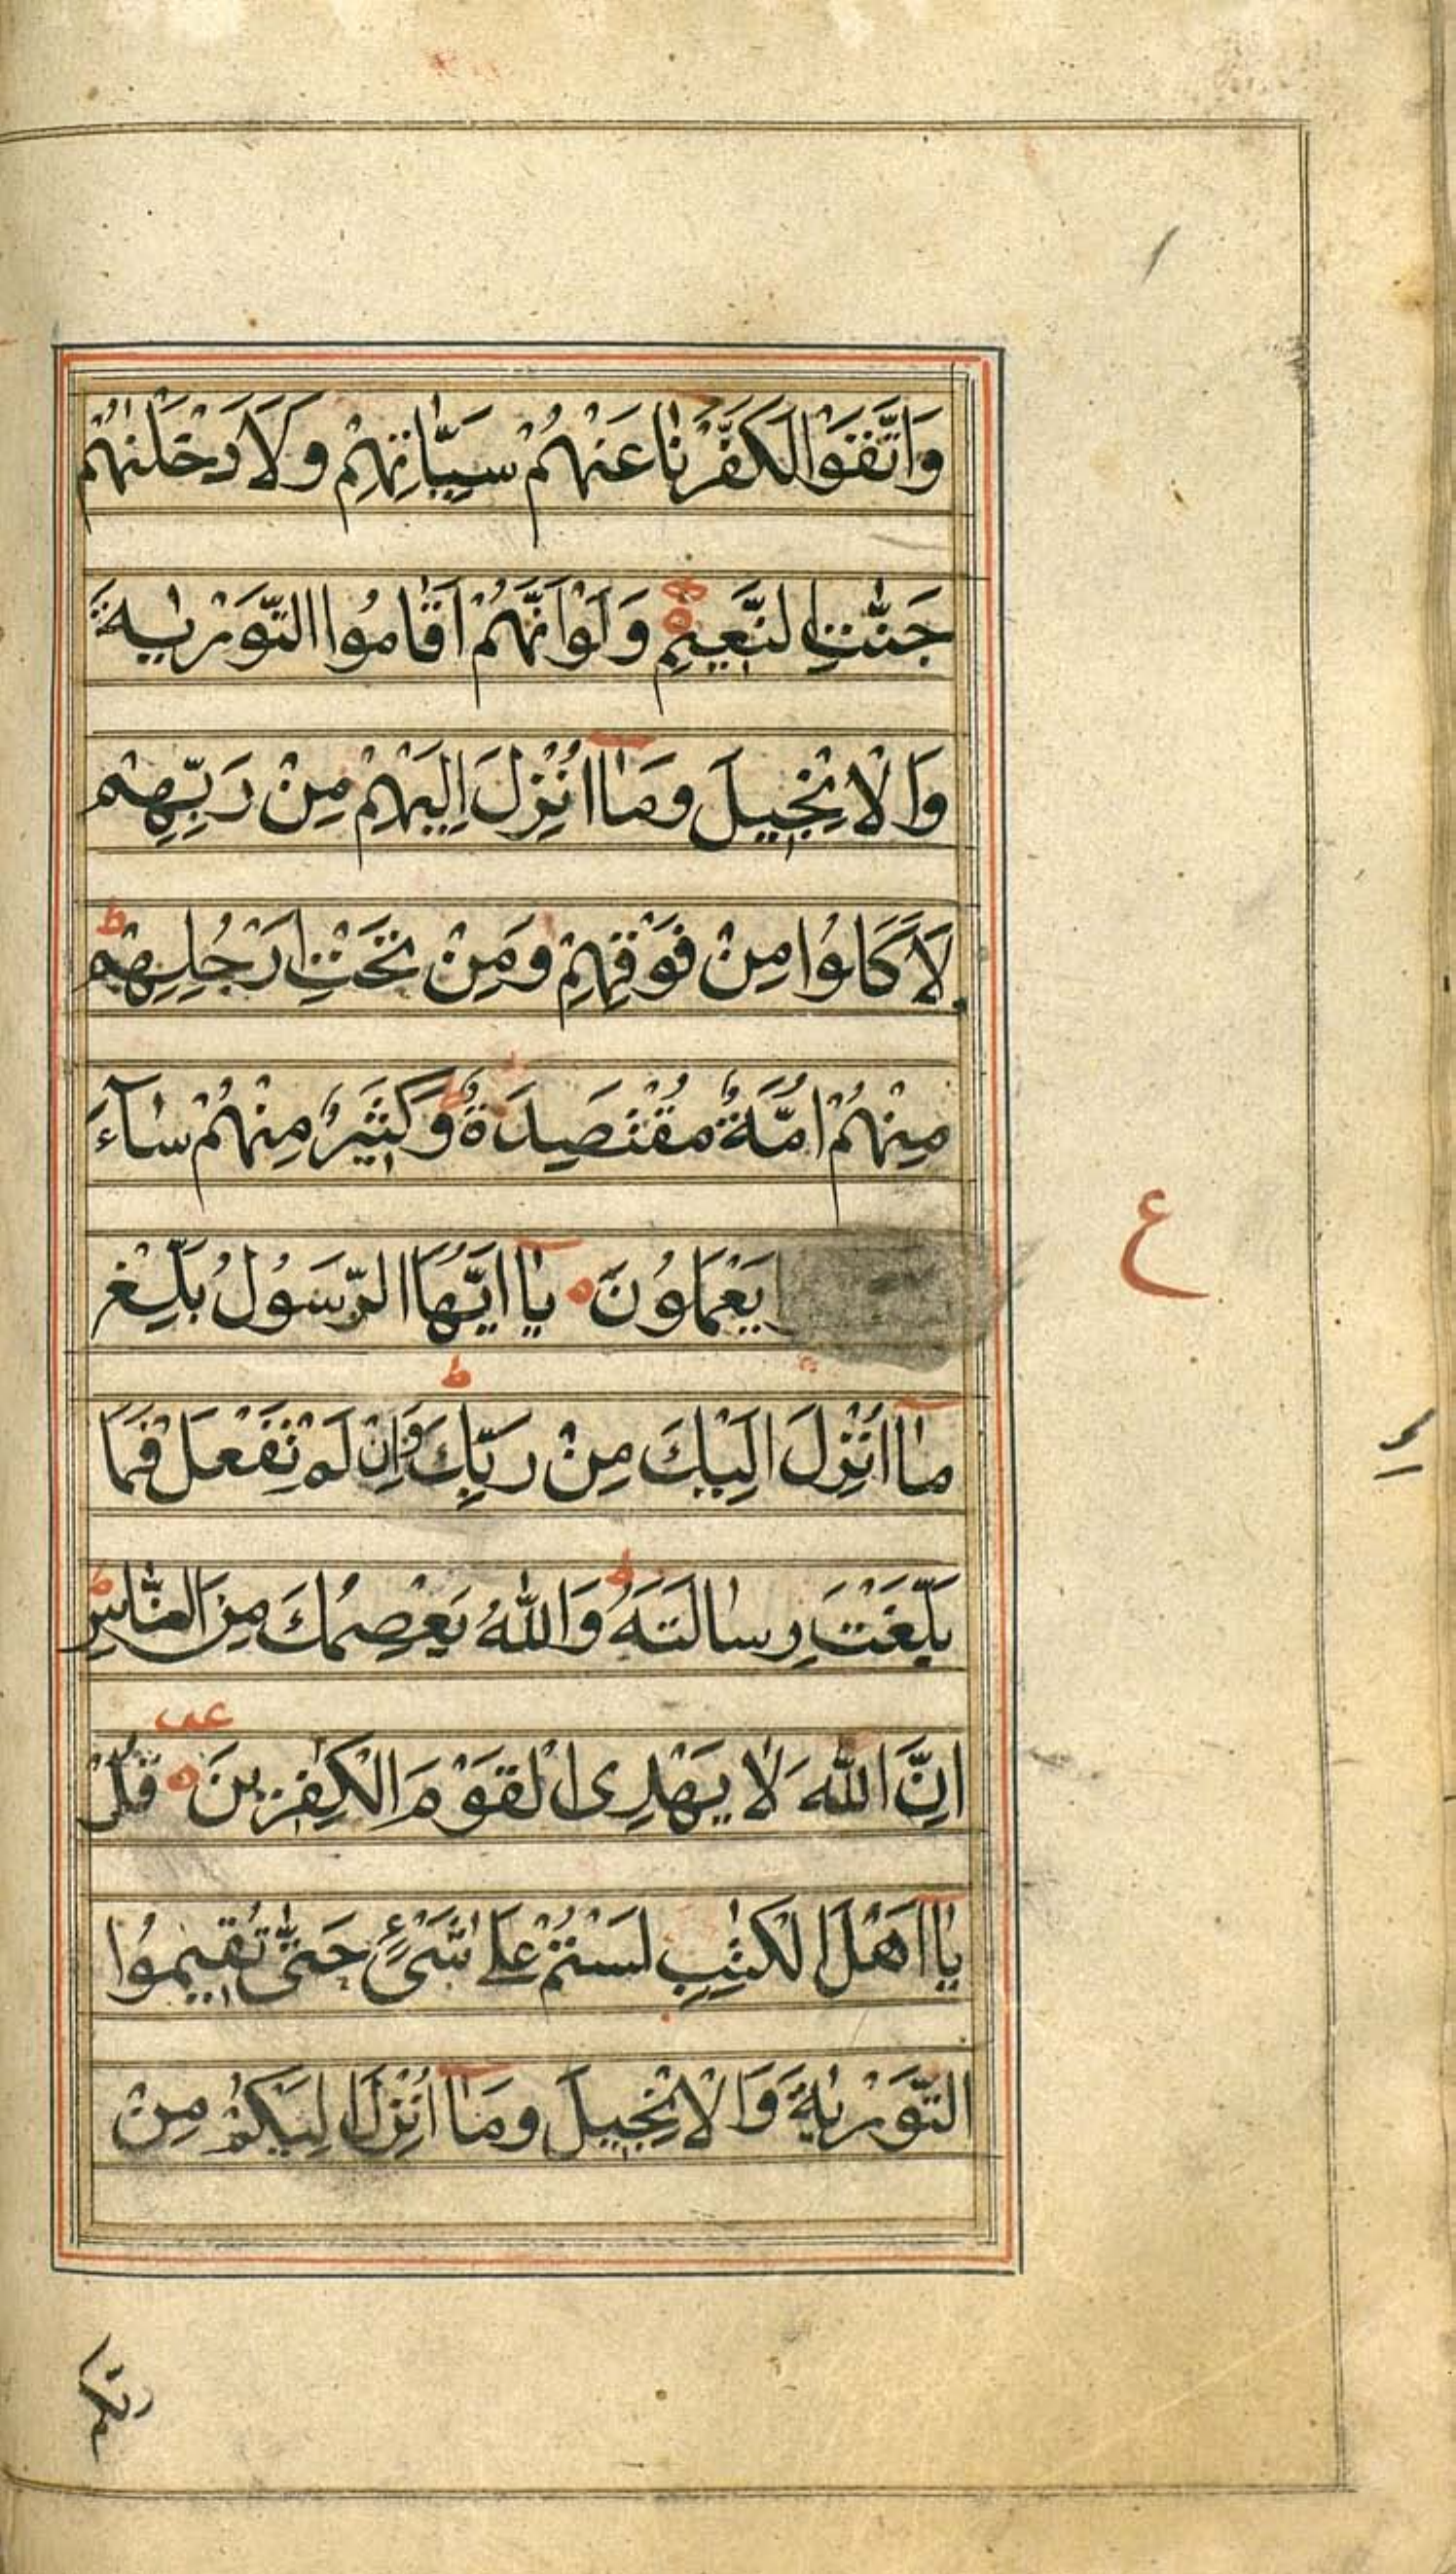 وَاتَّقَوْا لَكَفَّرْنَا عَنْهُمْ سَيِّاٰتِهِمْ وَلَاَدْخَلْنٰهُمْ
جَنّٰتِ النَّعِيْمِ ه وَلَوْ اَنَّهُمْ اَقَامُوا التَّوْرٰىةَ
وَالْاِنْجِيْلَ وَمَاۤ اُنْزِلَ اِلَيْهِمْ مِنْ رَبِّهِمْ
لَاَكَلُوْا مِنْ فَوْقِهِمْ وَمِنْ تَحْتِ اَرْجُلِهِمْ ط
مِنْهُمْ اُمَّةٌ مُقْتَصِدَةٌ ط وَكَثِيْرٌ مِنْهُمْ سَآءَ
يَعْمَلُوْنَ ه يٰاۤ اَيُّهَا الرَّسُوْلُ بَلِّغْ
ع
مَاۤ اُنْزِلَ اِلَيْكَ مِنْ رَبِّكَ ط وَاِنْ لَمْ تَفْعَلْ فَمَا
بَلَّغْتَ رِسَالَتَهُ ط وَاللّٰهُ يَعْصِمُكَ مِنَ النَّاسِ ط
اِنَّ اللّٰهَ لَا يَهْدِى الْقَوْمَ الْكٰفِرِيْنَ ه قُلْ
يٰاۤ اَهْلَ الْكِتٰبِ لَسْتُمْ عَلٰى شَىْءٍ حَتّٰى تُقِيْمُوا
التَّوْرٰىةَ وَالْاِنْجِيْلَ وَمَاۤ اُنْزِلَ اِلَيْكُمْ مِنْ
ربكم